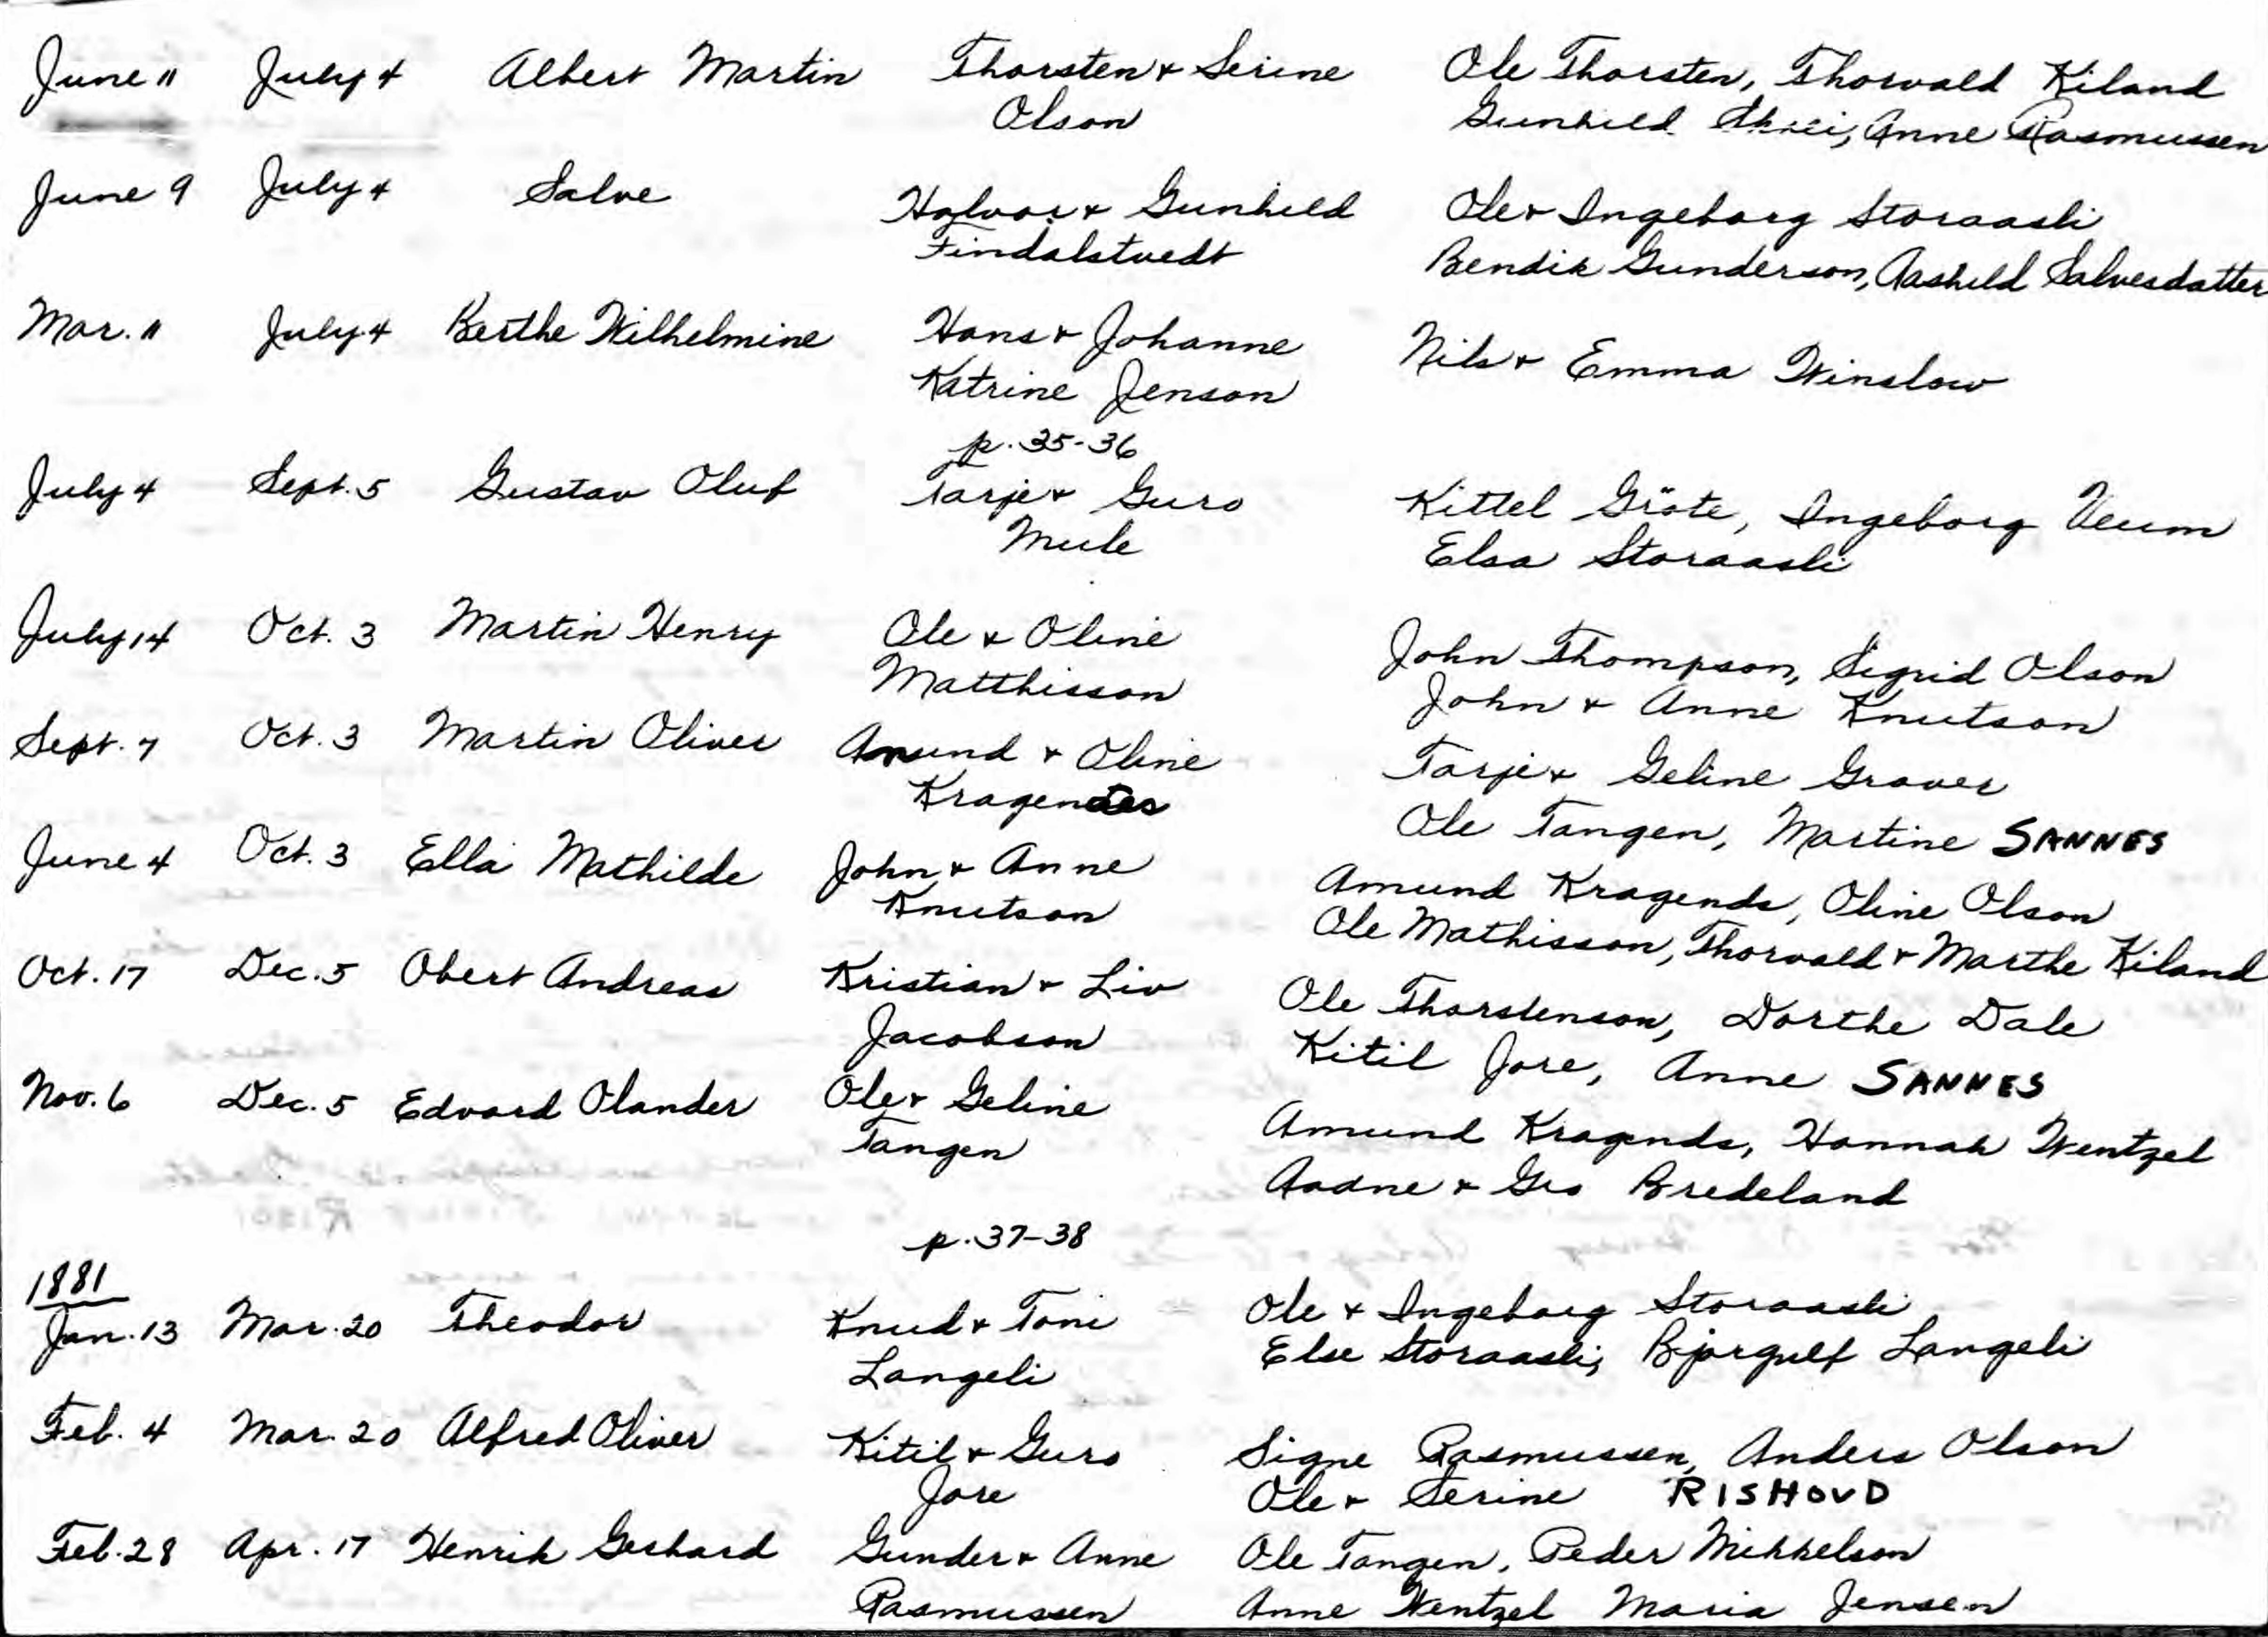 June 11 July 4 Albert Martin Thorsten & Serine Ole Thorsten, Thorvald Kiland
Olson Gunhild Anne Rasmussen
June 9 July 4 Salve Halvor & Gunhild Ole & Ingeborg Storaasli
Findalstvedt Bendik Gunderson, Aashild Salvesdatter
Mar. 11 July 4 Berthe Wilhelmine Hans & Johanne Nils & Emma Winslow
Katrine Jenson
p. 35-36
July 4 Sept. 5 Gustav Oluf Tarje & Guro Kittel Gröte, Ingeborg Veum
Mule Elsa Storaasli
July 14 Oct. 3 Martin Henry Ole & Oline John Thompson, Sigrid Olson
Matthisson John & Anne Knutson
Sept. 7 Oct. 3 Martin Oliver Amund & Oline Tarje & Geline Graver
Ole Tangen, Martine SANNES
June 4 Oct. 3 Ella Mathilde John & Anne Amund Kragends, Oline Olson
Knutson Ole Mathisson, Thorvald & Marthe Kiland
Oct. 17 Dec. 5 Obert Andreas Kristian & Liv Ole Thorstenson, Dorthe Dale
Jacobson Kitil Jore, Anne SANNES
Nov. 6 Dec. 5 Edvard Olander Ole & Geline Amund Kragends, Hannah Wentzel
Tangen Aadne & Gro Bredeland
p. 37-38
1881
Jan. 13 Mar. 20 Theodor Knud & Toni Ole & Ingeborg Storaasli
Langeli Else Storaasli, Bjorgulf Langeli
Feb. 4 Mar. 20 Alfred Oliver Kitil & Guro Signe Rasmussen, Anders Olson
Jore Ole & Serine RISHOVD
Feb. 28 Apr. 17 Henrik Gerhard Gunder & Anne Ole Tangen, Peder Mikkelson
Rasmussen Anne Wentzel Maria Jensen